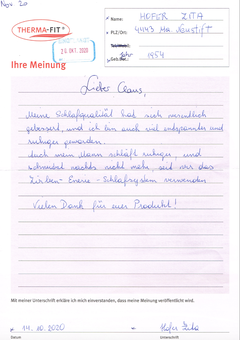 Nov. 20
THERMA-FIT®
Name: HOFER ZITA
PLZ/Ort: 4443 Ma. Neustift
20. OKT. 2020
Jahr 1954
Geb.dat.:
Ihre Meinung
Lieber Claus,
Meine Schlafqualität hat sich wesentlich
gebessert, und ich bin auch viel entspannter und
ruhiger geworden.
Auch mein Mann schläft ruhiger, und
schnarcht nachts nicht mehr, seit wir das
Zirben-Energie-Schlafsystem verwenden
Vielen Dank für euer Produkt!
Mit meiner Unterschrift erkläre ich mich einverstanden, dass meine Meinung veröffentlicht wird.
14.10.2020
Hofer Zita
Datum
Unterschrift